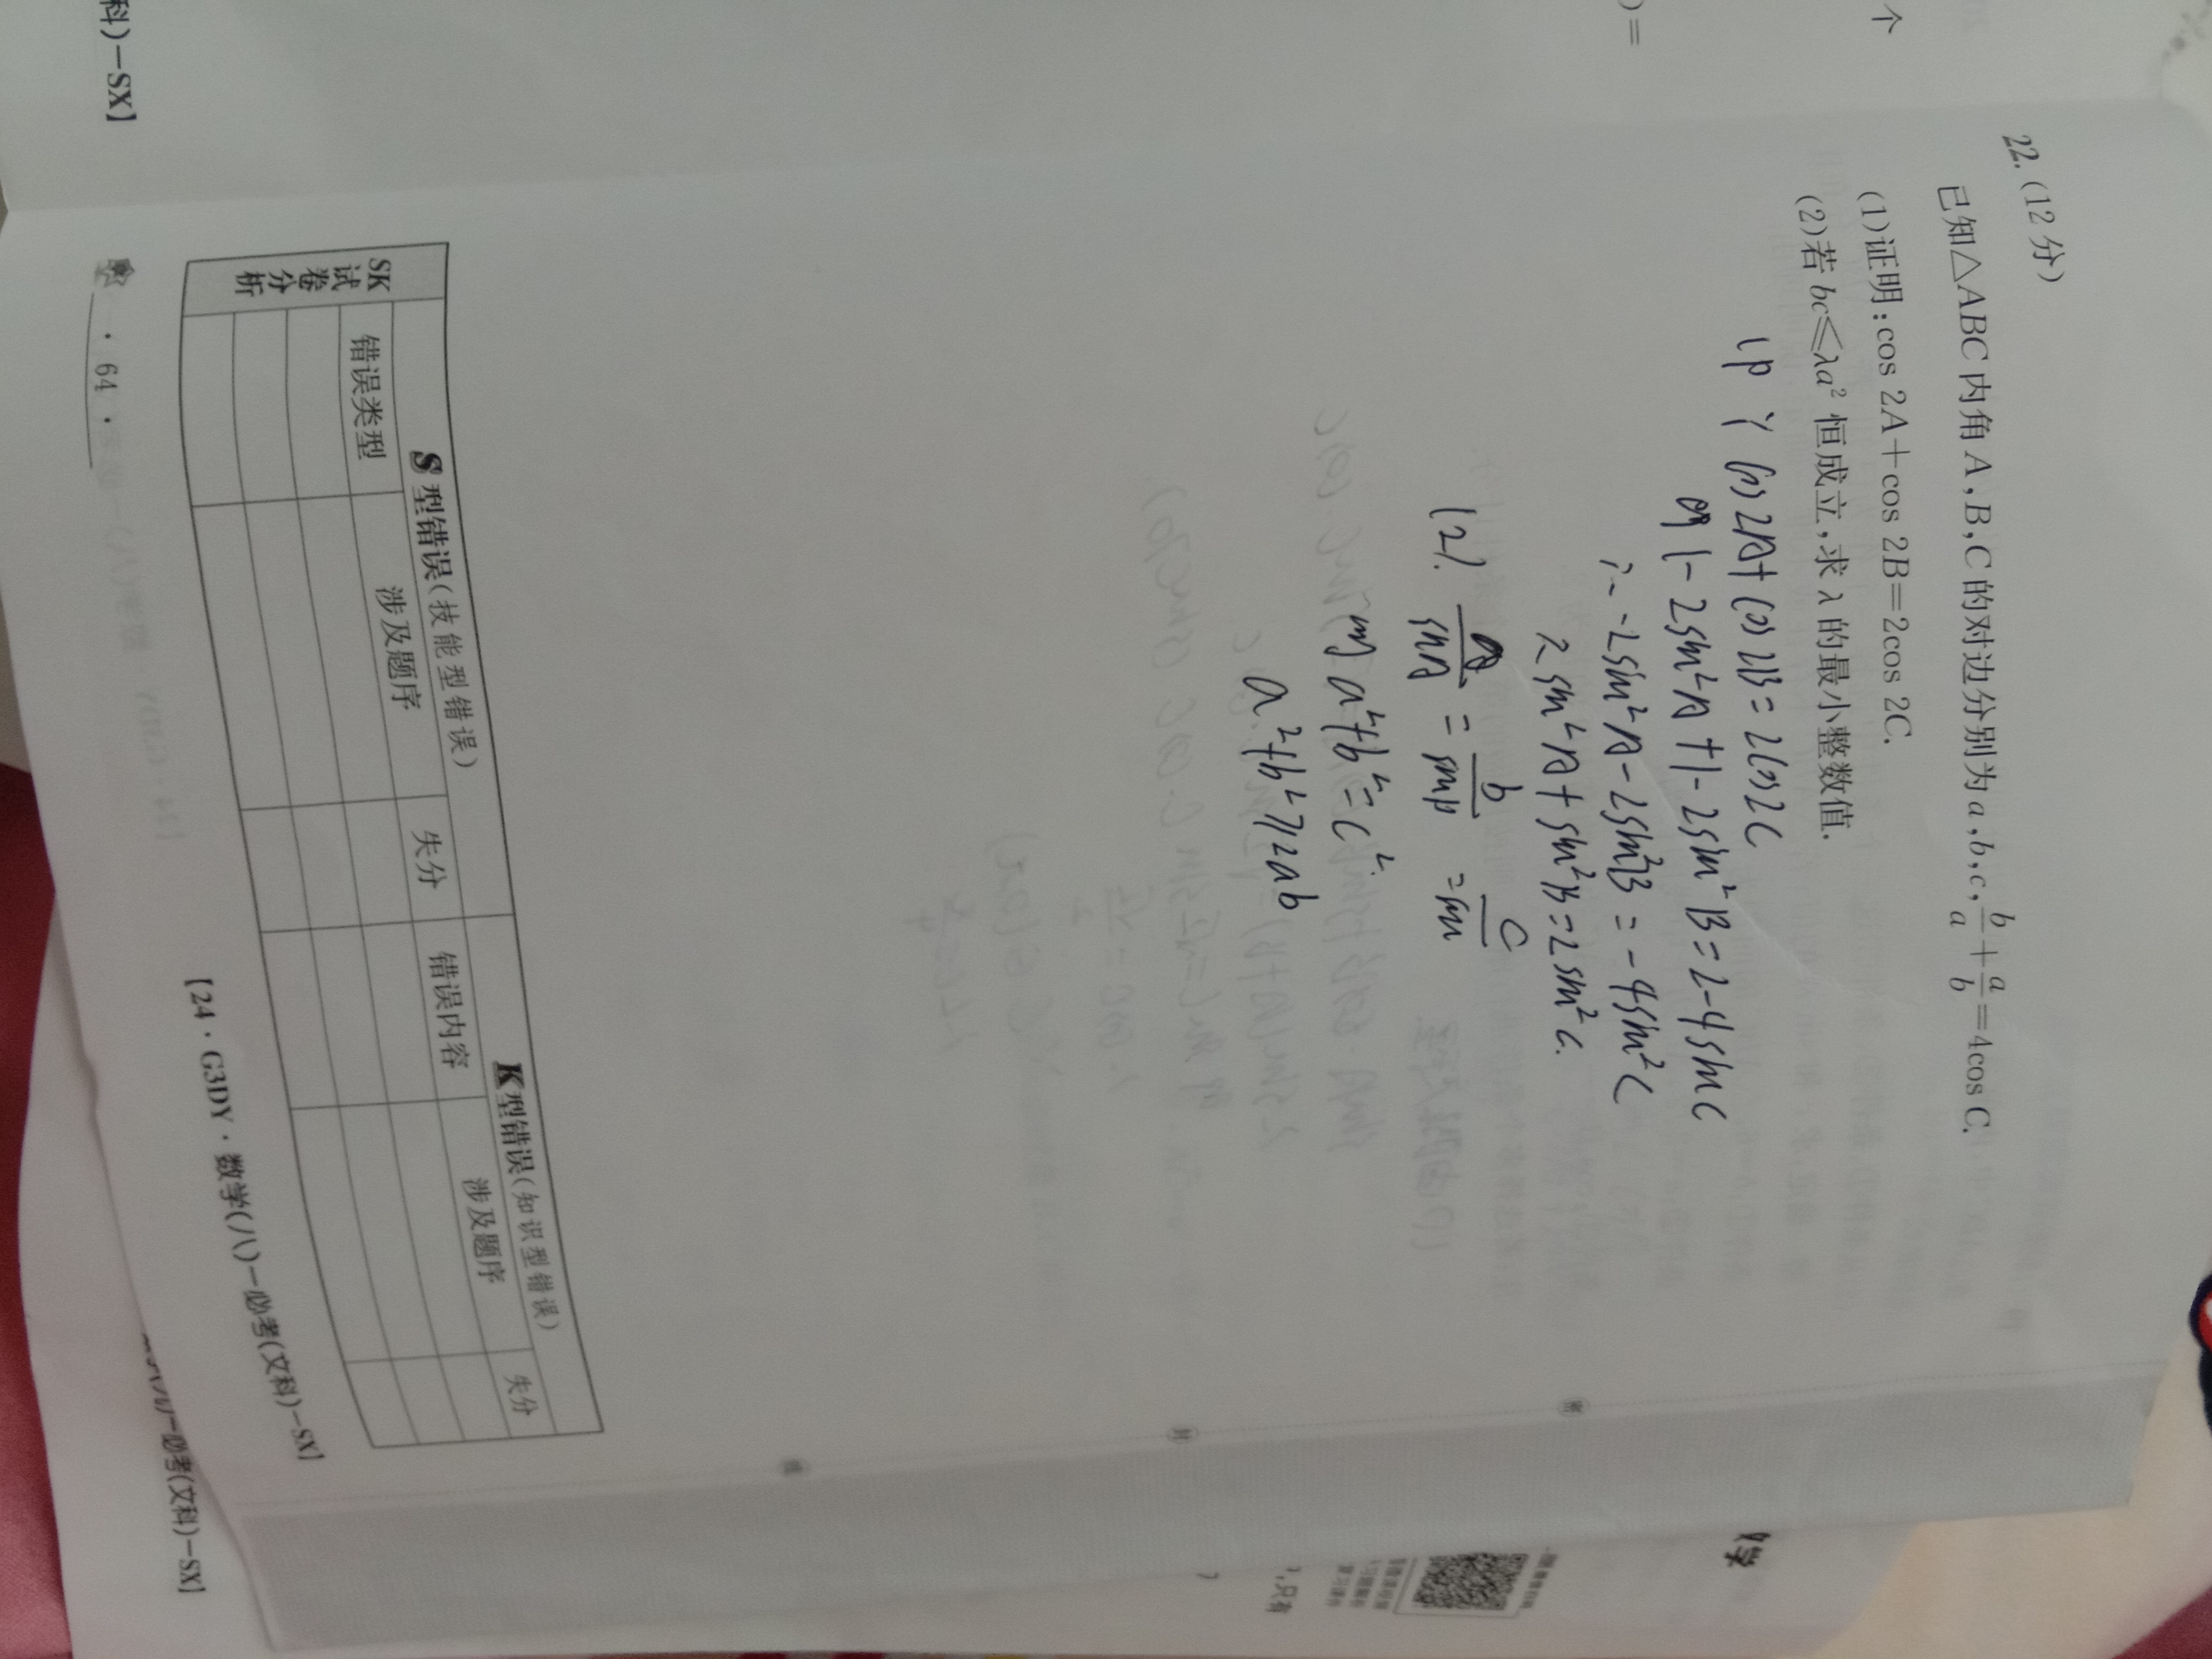 22.(12分)
已知△ABC内角A,B,C的对边分别为a,b,c,b/a+a/b=4cos C.
(1)证明:cos 2A+cos 2B=2cos 2C.
(2)若bc≤λa²恒成立,求λ的最小整数值.
cos 2A+cos 2B=2cos2C
1-2sin²A+1-2sin²B=2-4sinC
∴-2sin²A-2sin²B=-4sin²C
sin²A+sin²B=2sin²C.
(2). a/sinA = b/sinB = c/sin
a²+b²=c²
a²+b²≥2ab
SK试卷分析
S型错误(技能型错误)
K型错误(知识型错误)
错误类型 涉及题序 失分 错误内容 涉及题序 失分
· 64 ·
【24·G3DY·数学(八)-必考(文科)-SX】
必考(文科)-SX】
科)-SX】
个
)=
,只有
学
密
封
线